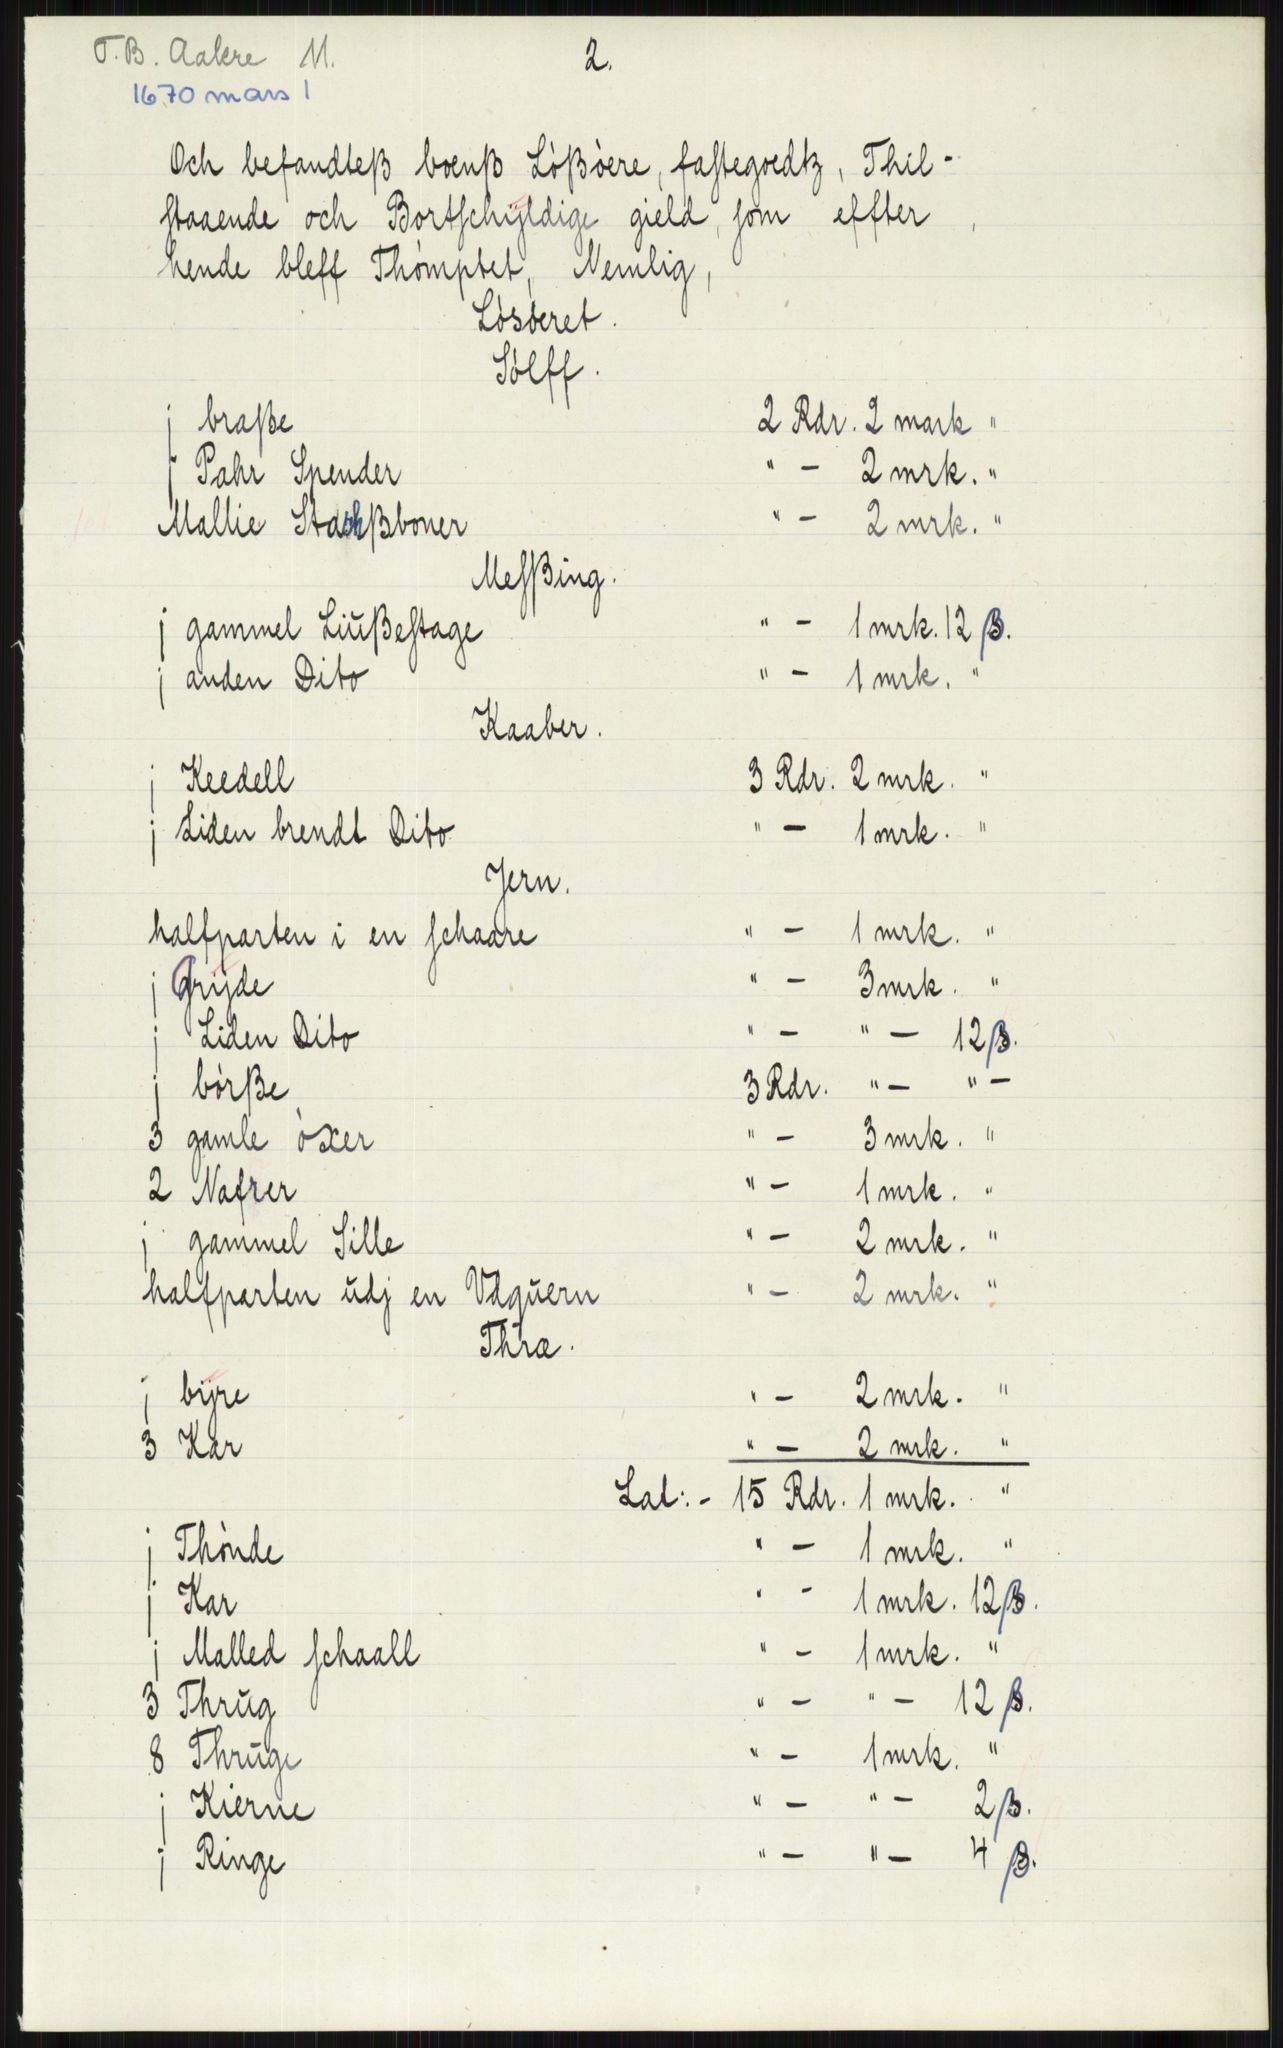 T. B. Aakre 11. 2.
1670 mars 1
Och befandteß boenß Lößöere, fastegoedtz, Thil-
staaende och Bortschÿldige gield, som effter
hende bleff Thömptet, Nemlig,
Lösöeret.
Sölff.
j braße 2 Rdr. 2 mark "
j Pahr Spender " - 2 mrk. "
Mallie Stachßboner " - 2 mrk. "
Mesßing.
j gammel Liüßestage " - 1 mrk. 12 ß.
j anden Dito " - 1 mrk. "
Kaaber.
j Keedell 3 Rdr. 2 mrk. "
j Liden brendt Dito " - 1 mrk. "
Jern.
halfparten i en schaare " - 1 mrk. "
j Grÿde " - 3 mrk. "
j Liden Dito " - " - 12 ß.
j börße 3 Rdr. " - " -
3 gamle öxer " - 3 mrk. "
2 Nafrer " - 1 mrk. "
j gammel Sille " - 2 mrk. "
halfparten üdj en Vdqüern " - 2 mrk. "
Thræ.
j bÿre " - 2 mrk. "
3 Kar " - 2 mrk. "
Lat: - 15 Rdr. 1 mrk. "
j Thönde " - 1 mrk. "
j Kar " - 1 mrk. 12 ß.
j Malled schaall " - 1 mrk. "
3 Thrüg " - " - 12 ß.
8 Thrüge " - 1 mrk. "
j Kierne " - " - 2 ß.
j Ringe " - " - 4 ß.